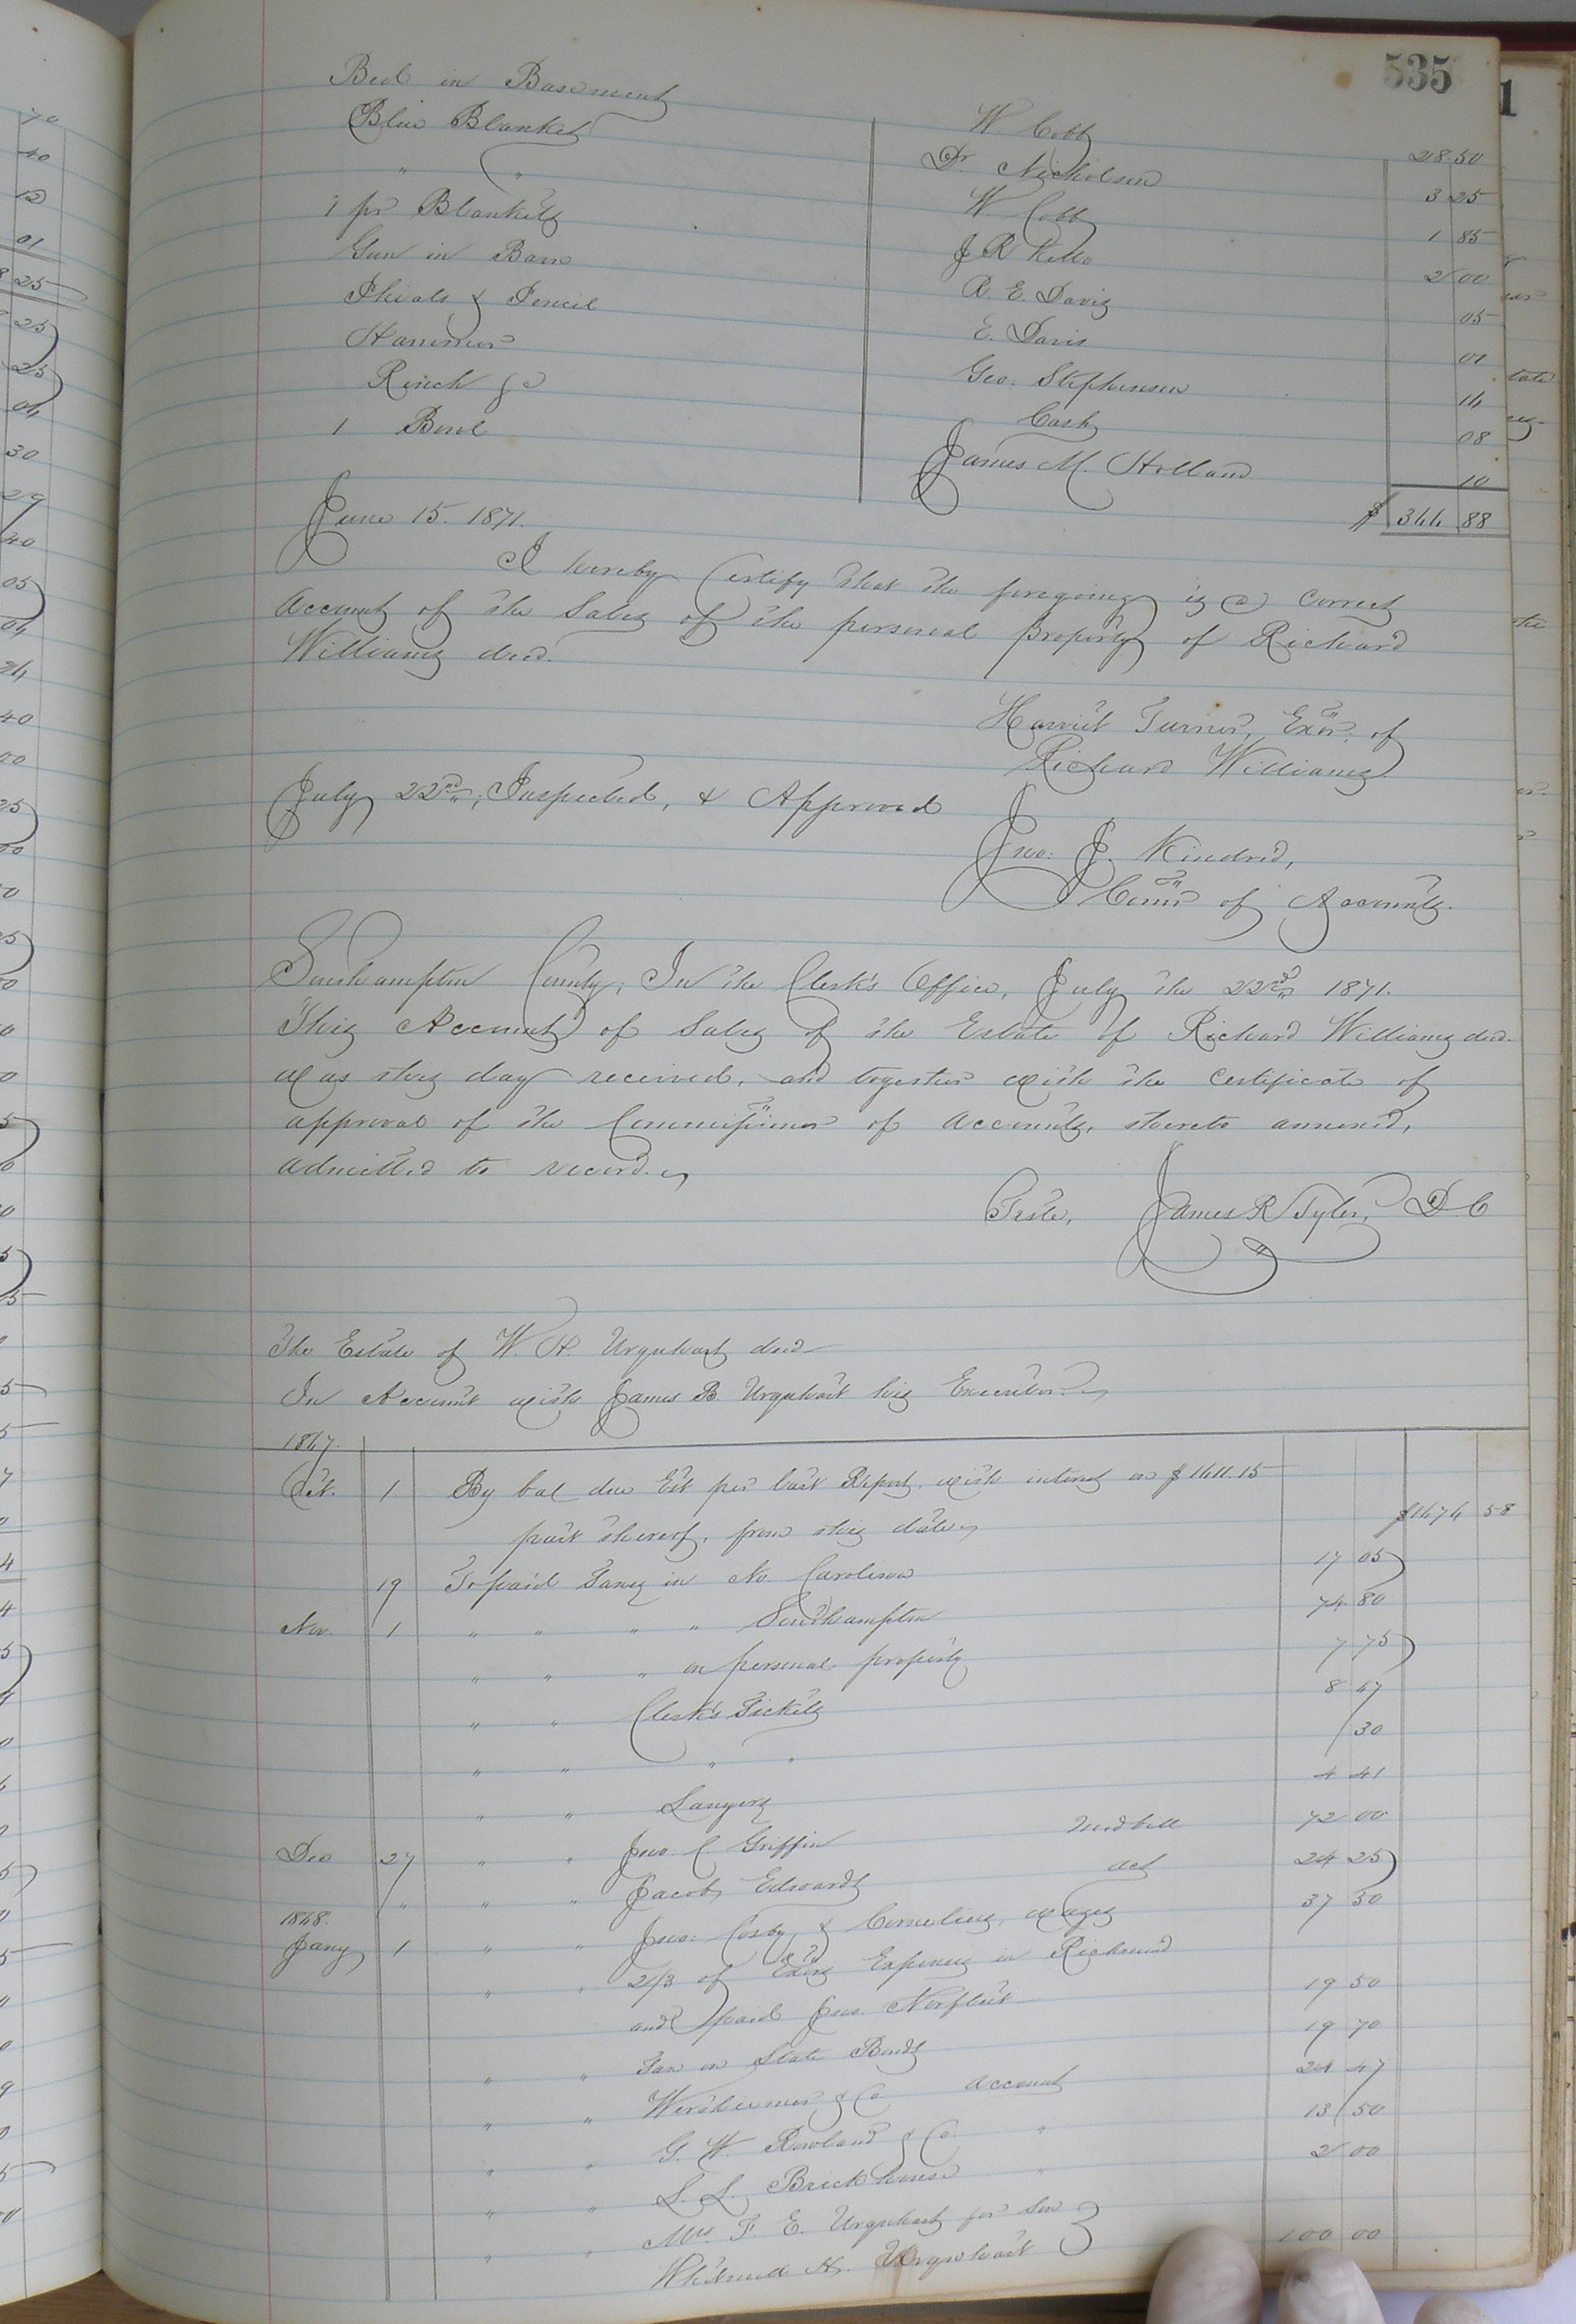 535
Bed in Basement W. Cobb 28 50
Blue Blanket Dr. Nicholson 3 25
" " W Cobb 1 85
1 pr Blankets J R Kello 2 00
Gun in Barn R. E. Davis 05
Phials & Pencil E. Davis 01
Hammer Geo: Stephenson 14
Rinch &c Cash 08
1 Bowl James M. Holland 10
June 15. 1871. $ 344 88
I hereby Certify that the foregoing is a correct
account of the Sales of the personal property of Richard
Williams decd.
Harriet Turner, Exor. of
Richard Williams
July 22nd, Inspected, & Approved
Jno: J. Kindred,
Comr of Accounts.
Southampton County; In the Clerk's Office, July the 22nd 1871.
This Account of Sales of the Estate of Richard Williams decd.
was this day received, and together with the certificate of
approval of the Commissioner of accounts, thereto annexed,
admitted to record.
Teste, James R Tyler, D. C
The Estate of W. H. Urquhart decd
In Account with James B. Urquhart his Executor
1867.
Oct. 1 By bal due Est per last Report, with interest on $1411.15
part thereof, from this date $1474 58
19 To paid Taxes in No. Carolina 17 05
Nov. 1 " " " " Southampton 74 80
" " " on personal property 7 75
" " Clerk's Tickets 8 47
" " " " 30
" " Lawyers 4 41
Dec 27 " " Jno. C. Griffin Medbill 72 00
" " " Jacob Edwards act 24 25
1868.
Jany 1 " " Jno: Cosby & Cornelius, wages 37 50
" " 2/3 of Exors Expenses in Richmond
and paid Jno. Norfleet 19 50
" " Tax on State Bonds 19 70
" " Wertheimer & Co. account 24 47
" " G. W. Rowland & Co. " 13 50
" " L. L. Brickhouse " 2 00
" " Mrs F E. Urquhart for Son
Whitmel H. Urquhart 100 00